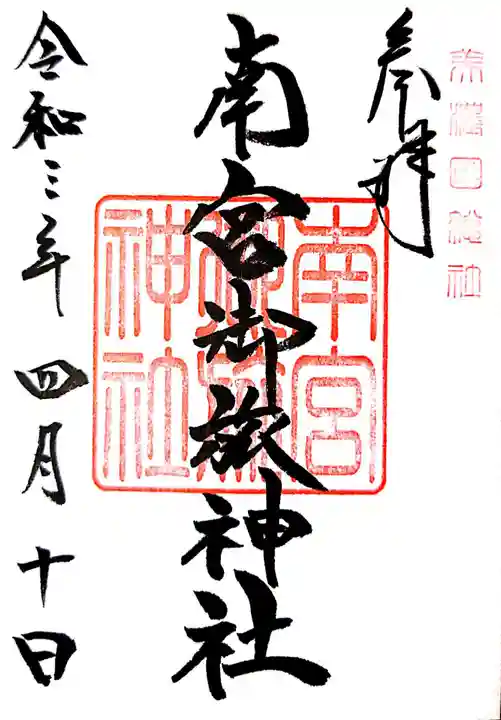 美濃国総社
参拝
南宮御旅神社
南宮
御旅
神社
令和三年四月十日